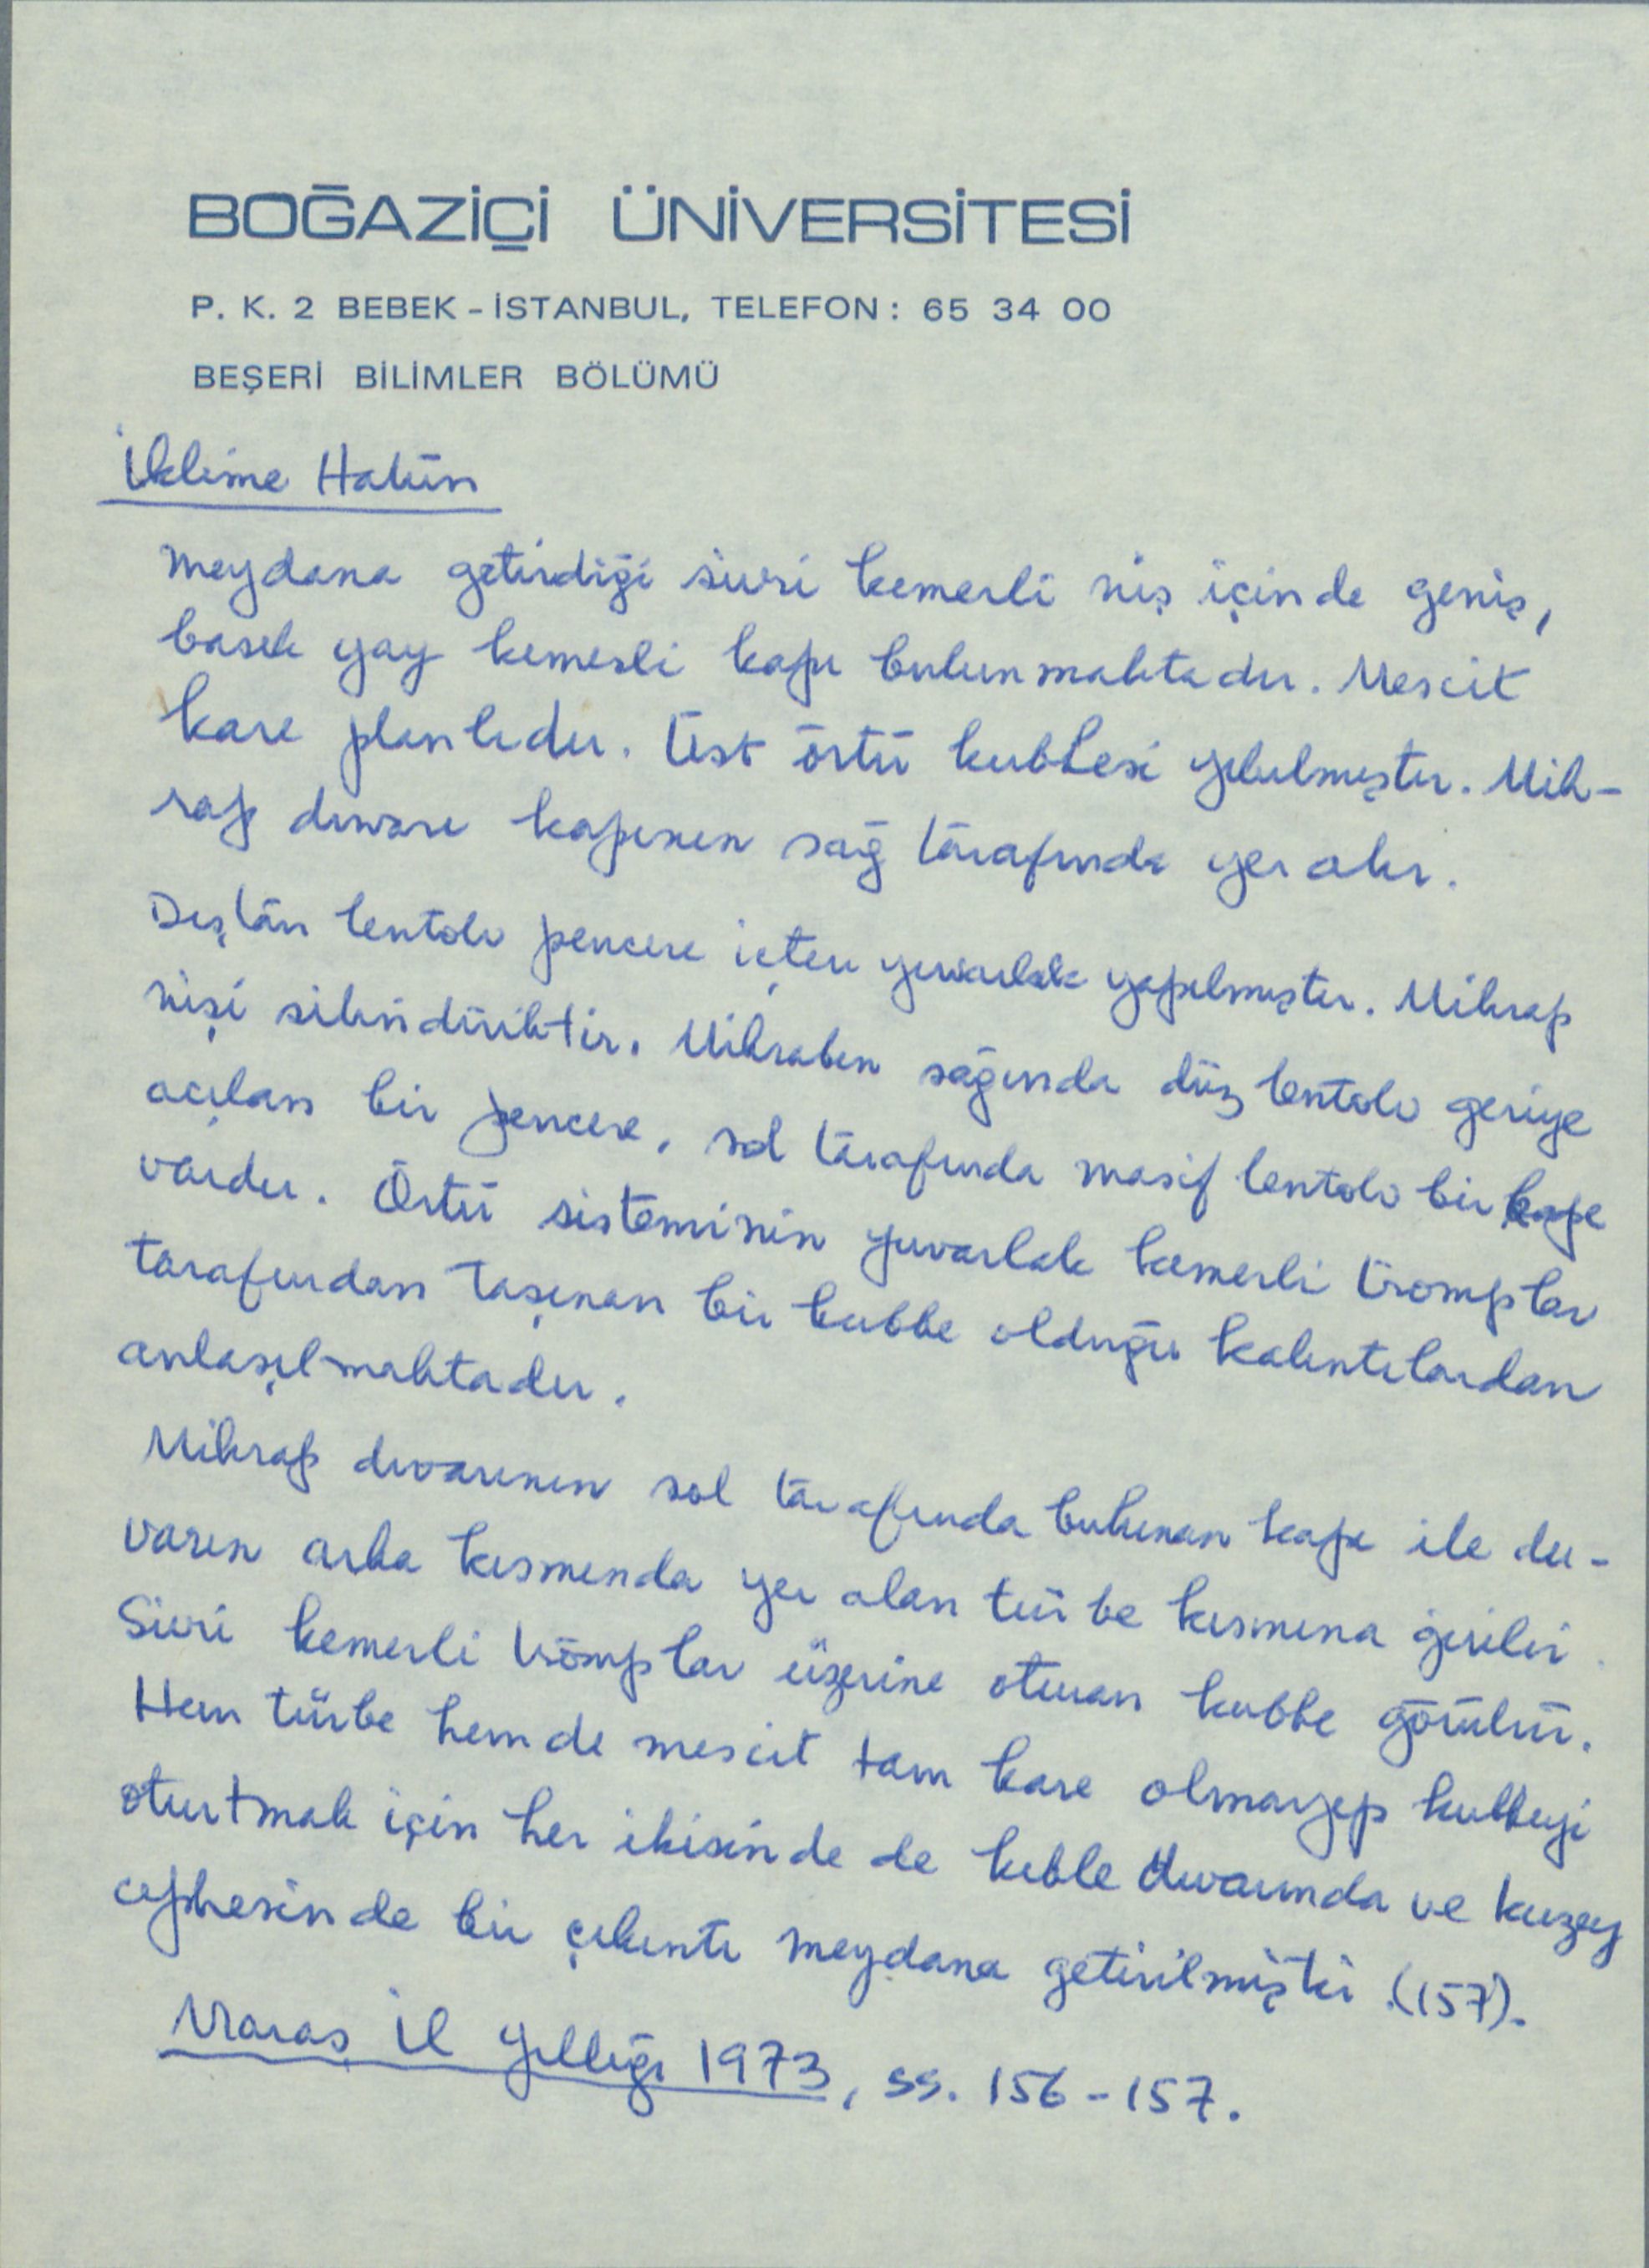 BOĞAZİÇİ ÜNİVERSİTESİ
P. K. 2 BEBEK - İSTANBUL, TELEFON : 65 34 00
BEŞERİ BİLİMLER BÖLÜMÜ
İklime Hatun
meydana getirdiği sivri kemerli niş içinde geniş,
basık yay kemerli kapı bulunmaktadır. Mescit
kare planlıdır. Üst örtü kubbesi yıkılmıştır. Mih-
rap duvarı kapının sağ tarafında yer alır.
Dıştan lentolu pencere içten yuvarlak yapılmıştır. Mihrap
nişi silindiriktir. Mihrabın sağında düz lentolu geriye
açılan bir pencere, sol tarafında masif lentolu bir kapı
vardır. Örtü sisteminin yuvarlak kemerli tromplar
tarafından taşınan bir kubbe olduğu kalıntılardan
anlaşılmaktadır.
Mihrap duvarının sol tarafında bulunan kapı ile du-
varın arka kısmında yer alan türbe kısmına girilir.
Sivri kemerli tromplar üzerine oturan kubbe görülür.
Hem türbe hem de mescit tam kare olmayıp kubbeyi
oturtmak için her ikisinde de kıble duvarında ve kuzey
cephesinde bir çıkıntı meydana getirilmiştir (157).
Maraş İl Yıllığı 1973, ss. 156-157.